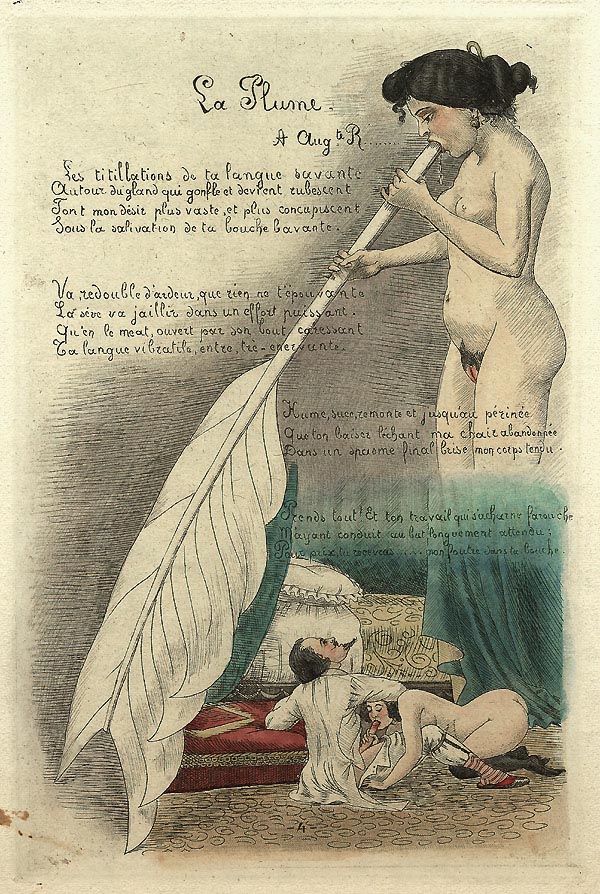 La Plume.
A Aug^te R........
Les titillations de ta langue savante
Autour du gland qui gonfle et devient rubescent
Font mon désir plus vaste, et plus concupiscent
Sous la salivation de ta bouche bavante.
Va, redouble d'ardeur, que rien ne t'épouvante
La sève va jaillir dans un effort puissant.
Qu'en le meat, ouvert par son bout caressant
Ta langue vibratile, entre, très-énervante.
Hume, suce, remonte et jusqu'au périnée
Que ton baiser léchant ma chair abandonnée
Dans un spasme final brise mon corps tendu.
Prends tout! Et ton travail qui s'acharne farouche
M'ayant conduit au but longuement attendu;
Pour prix, tu recevras..... mon foutre dans ta bouche.
-4-